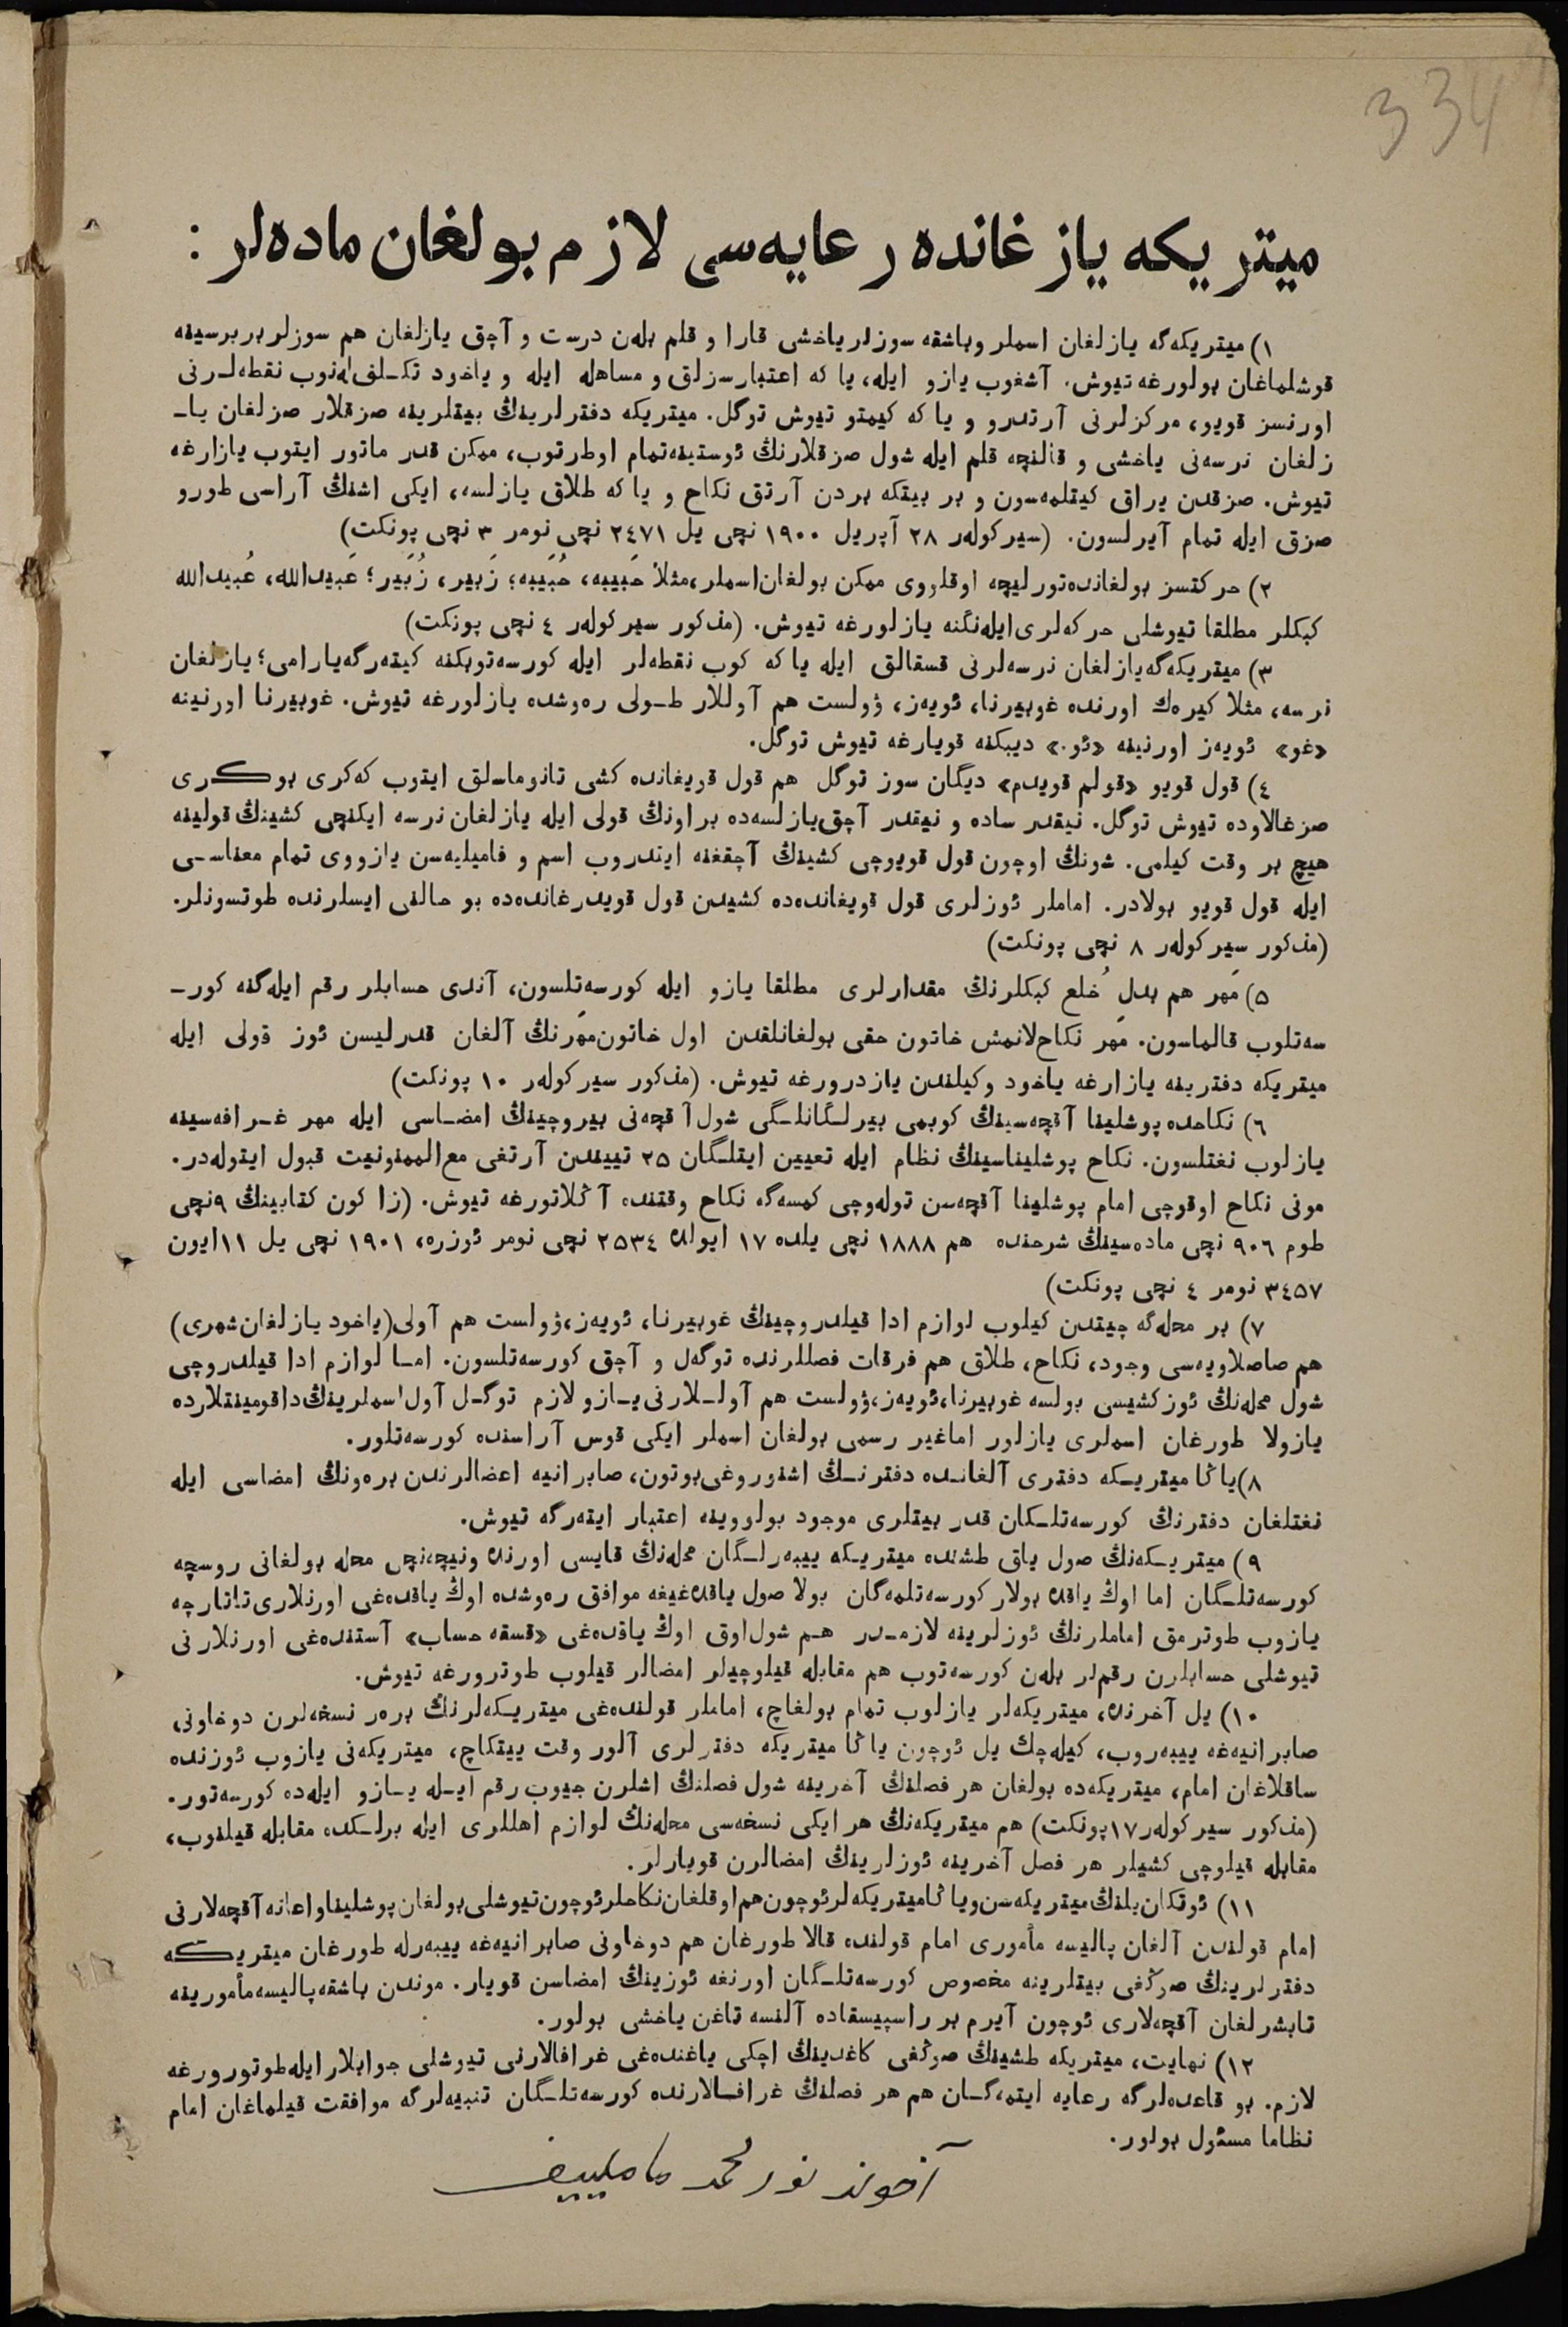 334
میتریکه یازغانده رعایه‌سی لازم بولغان ماده‌لر :
۱) میتریکه‌گه یازلغان اسملر وباشقه سوزلر یاخشی قارا و قلم بله‌ن درست و آچق یازلغان هم سوزلر بربرسینه
قوشلماغان بولورغه تیوش. آشغوب یازو ایله، یا که اعتبارسزلق و مساهله ایله و یاخود تکـلف‌له‌نوب نقطه‌لـرنی
اورنسز قویو، مرکزلرنی آرتدرو و یا که کیمتو تیوش توگل. میتریکه دفترلرینڭ بیتلرینه صزقلار صزلغان یاـ
زلغان نرسه‌نی یاخشی و قالنچه قلم ایله شول صزقلارنڭ ئوستینه‌تمام اوطرتوب، ممکن قدر ماتور ایتوب یازارغه
تیوش. صزقدن یراق کیتلمه‌سون و بر بیتکه بردن آرتق نکاح و یا که طلاق یازلسه، ایکی اشنڭ آراسی طورو
صزق ایله تمام آیرلسون. (سیرکوله‌ر ۲۸ آپریل ۱۹۰۰ نچی یل ۲٤۷۱ نچی نومر ۳ نچی پونکت)
۲) حرکتسز بولغانده‌تورلیچه اوقلووی ممکن بولغان‌اسملر،مثلاً حَبیبه، حُبَیبه؛ زَبیر، زُبَیر؛ عَبیدالله، عُبیدالله
کبکلر مطلقا تیوشلی حرکه‌لری‌ایله‌نگنه یازلورغه تیوش. (مذکور سیرکوله‌ر ٤ نچی پونکت)
۳) میتریکه‌گه‌یازلغان نرسه‌لرنی قسقالق ایله یا که کوب نقطه‌لر ایله کورسه‌توبکنه کیته‌رگه‌یارامی؛ یازلغان
نرسه، مثلا کیره‌ك اورنده غوبیرنا، ئویه‌ز، ۋولست هم آوللار طـولی ره‌وشده یازلورغه تیوش. غوبیرنا اورنینه
«غو» ئویه‌ز اورنینه «ئو.» دیبکنه قویارغه تیوش توگل.
٤) قول قویو «قولم قویدم» دیگان سوز توگل هم قول قویغانده کشی تانوماسلق ایتوب که‌کری بوکـری
صزغالاوده تیوش توگل. نیقدر ساده و نیقدر آچق‌یازلسه‌ده براونڭ قولی ایله یازلغان نرسه ایکنچی کشینڭ قولینه
هیچ بر وقت کیلمی. شونڭ اوچون قول قویوچی کشینڭ آچقغنه ایتدروب اسم و فامیلیه‌سن یازووی تمام معناسـی
ایله قول قویو بولادر. اماملر ئوزلری قول قویغانده‌ده کشیدن قول قویدرغانده‌ده بو حالنی ایسلرنده طوتسونلر.
(مذکور سیرکوله‌ر ۸ نچی پونکت)
۵) مَهر هم بدلِ خُلع کبکلرنڭ مقدارلری مطلقا یازو ایله کورسه‌تلسون، آندی حسابلر رقم ایله‌گنه کورـ
سه‌تلوب قالماسون. مَهر نکاح‌لانمش خاتون حقی بولغانلقدن اول خاتون‌مَهرنڭ آلغان قدرلیسن ئوز قولی ایله
میتریکه دفترینه یازارغه یاخود وکیلندن یازدرورغه تیوش. (مذکور سیرکوله‌ر ۱۰ پونکت)
٦) نکاحده‌پوشلینا آقچه‌سینڭ کوبمی بیرلـگانلـگی شول آقچه‌نی بیروچینڭ امضـاسی ایله مهر غـرافه‌سینه
یازلوب نغتلسون. نکاح پوشلیناسینڭ نظام ایله تعیین ایتلـگان ۲۵ تییندن آرتغی مع‌الممنونیت قبول ایتوله‌در.
مونی نکاح اوقوچی امام پوشلینا آقچه‌سن توله‌وچی کمسه‌گه نکاح وقتنده آڭلاتورغه تیوش. (زاکون کتابینڭ ۹نچی
طوم ۹۰٦ نچی ماده‌سینڭ شرحنده هم ۱۸۸۸ نچی یلده ۱۷ ایولده ۲۵۳٤ نچی نومر ئوزره، ۱۹۰۱ نچی یل ۱۱ایون
۳٤۵۷ نومر ٤ نچی پونکت)
۷) بر محله‌گه چیتدن کیلوب لوازم ادا قیلدروچینڭ غوبیرنا، ئویه‌ز،ۋولست هم آولی(یاخود یازلغان‌شهری)
هم صاصلاویه‌سی وجود، نکاح، طلاق هم فرقات فصللرنده توگه‌ل و آچق کورسه‌تلسون. امـا لوازم ادا قیلدروچی
شول محله‌نڭ ئوزکشیسی بولسه غوبیرنا،ئویه‌ز،ۋولست هم آولـلارنی‌یـازو لازم توگـل آول‌اسملرینڭ‌داقومینتلارده
یازولا طورغان اسملری یازلور اماغیر رسمی بولغان اسملر ایکی قوس آراسنده کورسه‌تلور.
۸)یاڭا میتریـکه دفتری آلغانـده دفترنـڭ اشنوروغی‌بوتون، صابرانیه اعضالرندن بره‌ونڭ امضاسی ایله
نغتلغان دفترنڭ کورسه‌تلـکان قدر بیتلری موجود بولووینه اعتبار ایته‌رگه تیوش.
۹) میتریـکه‌نڭ صول یاق طشنده میتریـکه ییبه‌رلـگان محله‌نڭ قایسی اورنده ونیچه‌نچی محله بولغانی روسچه
کورسه‌تلـگان اما اوڭ یاقده بولار کورسه‌تلمه‌گان بولا صول یاقده‌غیغه موافق ره‌وشده اوڭ یاقده‌غی اورنلاری‌تاتارچه
یازوب طوترمق اماملرنڭ ئوزلرینه لازمـدر هـم شول‌اوق اوڭ یاقده‌غی «قسقه حساب» آستنده‌غی اورنلارنی
تیوشلی حسابلرن رقملر بله‌ن کورسه‌توب هم مقابله قیلوچیلر امضالر قیلوب طوترورغه تیوش.
۱۰) یل آخرنده، میتریکه‌لر یازلوب تمام بولغاچ، اماملر قولنده‌غی میتریـکه‌لرنڭ بره‌ر نسخه‌لرن دوخاونی
صابرانیه‌غه ییبه‌روب، کیله‌چك یل ئوچون یاڭا میتریکه دفترلری آلور وقت ییتکاچ، میتریکه‌نی یازوب ئوزنده
ساقلاغان امام، میتریکه‌ده بولغان هر فصلنڭ آخرینه شول فصلنڭ اشلرن جیوب رقم ایـله یـازو ایله‌ده کورسه‌تور.
(مذکور سیرکوله‌ر۱۷پونکت) هم میتریکه‌نڭ هر ایکی نسخه‌سی محله‌نڭ لوازم اهللری ایله برلـکده مقابله قیلنوب،
مقابله قیلوچی کشیلر هر فصل آخرینه ئوزلرینڭ امضالرن قویارلر.
۱۱) ئوتکان‌یلنڭ‌میتریکه‌سن‌ویاڭامیتریکه‌لرئوچون‌هم‌اوقلغان‌نکاحلرئوچون‌تیوشلی‌بولغان‌پوشلیناواعانه‌آقچه‌لارنی
امام قولندن آلغان پالیسه مأموری امام قولنده قالا طورغان هم دوخاونی صابرانیه‌غه ییبه‌رله طورغان میتریـکه
دفترلرینڭ صوڭغی بیتلرینه مخصوص کورسه‌تلـگان اورنغه ئوزینڭ امضاسن قویار. موندن باشقه‌پالیسه‌مأمورینه
تابشرلغان آقچه‌لاری ئوچون آیرم بر راسپیسقاده آلنسه تاغن یاخشی بولور.
۱۲) نهایت، میتریکه طشینڭ صوڭغی کاغدینڭ اچکی یاغنده‌غی غرافالارنی تیوشلی جوابلار‌ایله‌طوتورورغه
لازم. بو قاعده‌لرگه رعایه ایتمه‌گـان هم هر فصلنڭ غرافـالارنده کورسه‌تلـگان تنبیه‌لرگه موافقت قیلماغان امام
نظاما مسئول بولور.
آخوند نورمحمد ماملییف